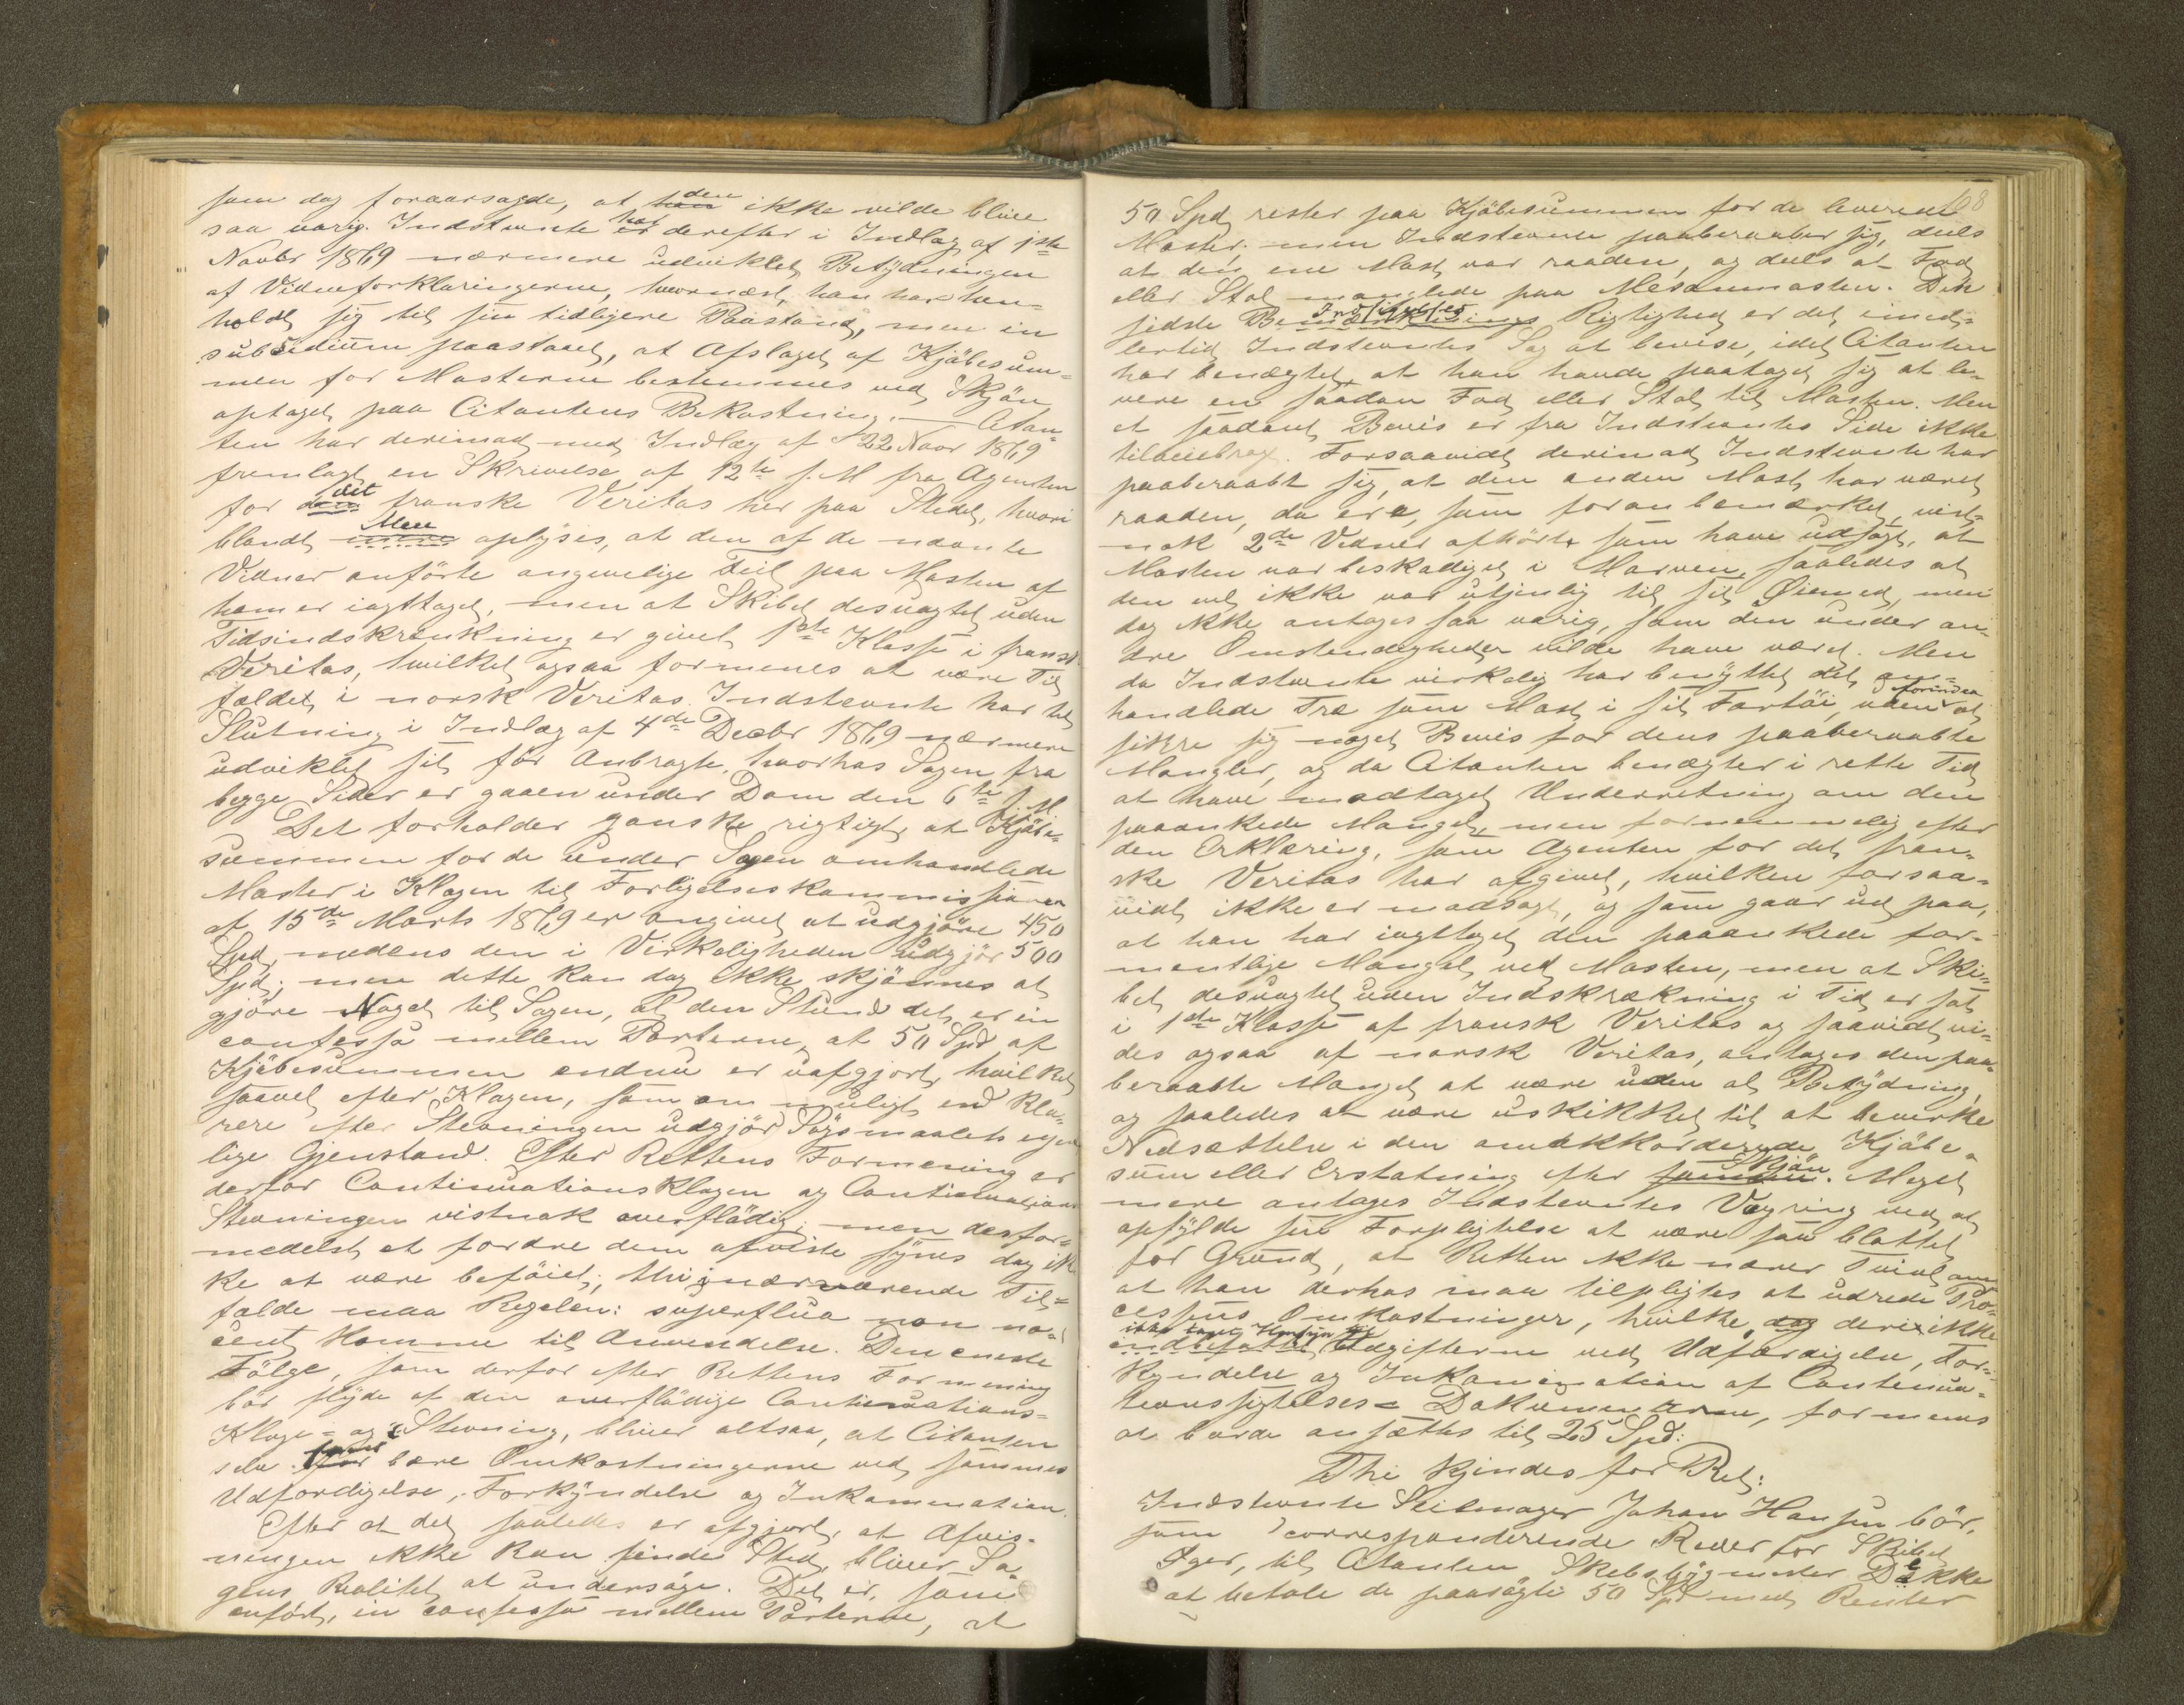 som dog foraarsagde, at den ikke vilde blive
saa varig. Indstevnte har derefter i Indlæg af 1ste
Novbr 1869 nærmere udviklet Betydningen
af Vidneforklaringerne, hvornæst han har hen-
holdt sig til sin tidligere Paastand, men in
subsidium paastaaet, at Afslaget af Kjöbesum-
men for Masterne bestemmes ved Skjön
optaget paa Citantens Bekostning. — Citan-
ten har derimod med Indlæg af 22 Novr 1869
fremlagt en Skrivelse af 12te s. M fra Agenten
for det franske Veritas her paa Stedet, hvori
blandt Mere oplyses, at den af de nævnte
Vidner anförte angivelige Feil paa Masten af
ham er iagttaget, men at Skibet desuagtet uden
Tidsindskrænkning er givet 1ste Klasse i fransk
Veritas, hvilket ogsaa formenes at være Til-
fældet i norsk Veritas. Indstevnte har til
Slutning i Indlæg af 4de Decbr 1869 nærmere
udviklet sit för Anbragte, hvorhos Sagen fra
begge Sider er gaaen under Dom den 6te s. M.
Det forholder ganske rigtigt, at Kjöbe-
summen for de under Sagen omhandlede
Master i Klagen til Forligelseskommissionen
af 15de Marts 1869 er angivet at udgjöre 450
Spd, medens den i Virkeligheden udgjör 500
Spd; men dette kan dog ikke skjönnes at
gjöre Noget til Sagen, al den Stund det er in
confesso mellem Parterne, at 50 Spd af
Kjöbesummen endnu er uafgjort, hvilket
saavel efter Klagen, som om muligt end kla-
rere efter Stevningen udgjör Sögsmaalets egent-
lige Gjenstand. Efter Rettens Formening er
derfor Continuationsklagen og Continuations
Stevningen vistnok overflödig; men desfor-
medelst at fordre dem afviste synes dog ik-
ke at være beföiet; thi i nærværende Til-
fælde maa Regelen: superflua non no-
cent komme til Anvendelse. Den eneste
Fölge, som derfor efter Rettens Formening
bör flyde af den overflödige Continuations-
Klage- og Stevning, bliver altsaa, at Citanten
selv bære Omkostningerne ved sammes
Udfærdigelse, Forkyndelse og Inkamination.
Efter at det saaledes er afgjort, at Afvis-
ningen ikke kan finde Sted, bliver Sa-
gens Realitet at undersöge. Det er, som
anfört, in confesso mellem Parterne, at
68
50 Spd rester paa Kjöbesummen for de leverede
Master, men Indstevnte paaberaaber sig, deels
at den ene Mast var raaden, og deels at Fod
eller Stol manglede paa Mesanmasten. Den
sidste Indsigelses Rigtighed er det imid-
lertid Indstevntes Sag at bevise, idet Citanten
har benægtet at han havde paataget sig at le-
vere en saadan Fod eller Stol til Masten. Men
et saadant Bevis er fra Indstevntes Side ikke
tilveiebragt. Forsaavidt derimod Indstevnte har
paaberaabt sig, at den anden Mast har været
raaden, da ere, som foran bemærket, vist-
nok 2de Vidner afhörte som have udsagt, at
Masten var beskadiget i Marven, saaledes at
den vel ikke var utjenlig til sit Øiemed, men
dog ikke antages saa varig, som den under an-
dre Omstændigheder vilde have været. Men
da Indstevnte virkelig har benyttet det om-
handlede Træ som Mast i sit Fartöi, uden forinden at
sikre sig noget Bevis for dens paaberaabte
Mangler, og da Citanten benægter i rette Tid
at have modtaget Underretning om den
paaankede Mangel, men fornemmelig efter
den Erklæring, som Agenten for det fran-
ske Veritas har afgivet, hvilken forsaa-
vidt ikke er modsagt, og som gaar ud paa,
at han har iagttaget den paaankede for-
mentlige Mangel ved Masten, men at Ski-
bet desuagtet uden Indskrækning i Tid er sat
i 1ste Klasse af fransk Veritas og saavidt vi-
des ogsaa af norsk Veritas, antages den paa-
beraabte Mangel at være uden al Betydning,
og saaledes at være uskikket til at bevirke
Nedsættelse i den omakkorderede Kjöbe-
sum eller Erstatning efter Skjön. Meget
mere antages Indstevntes Vægring ved at
opfylde sin Forpligtelse at være saa blottet
for Grund, at Retten ikke nærer Tvivl om
at han derhos maa tilpligtes at udrede Pro-
cessens Omkostninger, hvilke,
ikke taget Hensyn til Udgifterne ved Udfærdigelse, For-
kyndelse og Inkamination af Continua-
tionssigtelses-Dokumenterne, formenes
at burde ansættes til 25 Spd:
Thi kjendes for Ret:
Indstevnte Seilmager Johan Hansen bör,
som correspenderende Reder for Skibet
Æger, til Citanten Skibsbygmester Dekke
at betale de paasögte 50 Spd med Renter